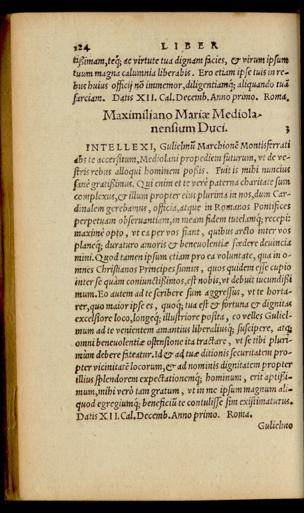 124 LIBER
tißimam, teq́; ac virtute tua dignam facies, & virum ipsum
tuum magna calumnia liberabis. Ero etiam ipse tuis in re-
bus huius officij nō immemor, diligentiamq́; aliquando tuā
sarciam. Datis XII. Cal. Decemb. Anno primo. Roma.
Maximiliano Mariæ Mediola-
nensium Duci. 3
INTELLEXI, Gulielmū Marchionē Montisferrati
abs te accersitum, Mediolani propediem futurum, vt de ve-
stris rebus alloqui hominem poßis. Fuit is mihi nuncius
sanè gratißimus. Qui enim et te verè paterna charitate sum
complexus, & illum propter eius plurima in nos, dum Car-
dinalem gerebamus, officia, atque in Romanos Pontifices
perpetuam obseruantiam, in meam fidem tutelamq́; recepi:
maximè opto, vt ea per vos fiant, quibus arcto inter vos
planeq́; duraturo amoris & beneuolentiæ fœdere deuincia
mini. Quod tamen ipsum etiam pro ea voluntate, qua in o-
mnes Christianos Principes sumus, quos quidem esse cupio
inter se quàm coniunctißimos, est nobis, vt debuit iucundißi
mum. Eo autem ad te scribere sum aggressus, vt te horta-
rer, quo maior ipse es, quoq́; tua est & fortuna & dignitas
excelsiore loco, longeq́; illustriore posita, eo velles Guliel-
mum ad te venientem amantius liberaliusq́; suscipere, atq́;
omni beneuolentiæ ostensione ita tractare, vt se tibi pluri-
mùm debere fateatur. Id & ad tuæ ditionis securitatem pro-
pter vicinitatē locorum, & ad nominis dignitatem propter
illius splendorem expectationemq́; hominum, erit aptißi-
mum, mihi verò tam gratum, vt in me ipsum magnum ali-
quod egregiumq́; beneficiū te contulisse sim existimaturus.
Datis XII. Cal. Decemb. Anno primo. Roma.
Gulielmo